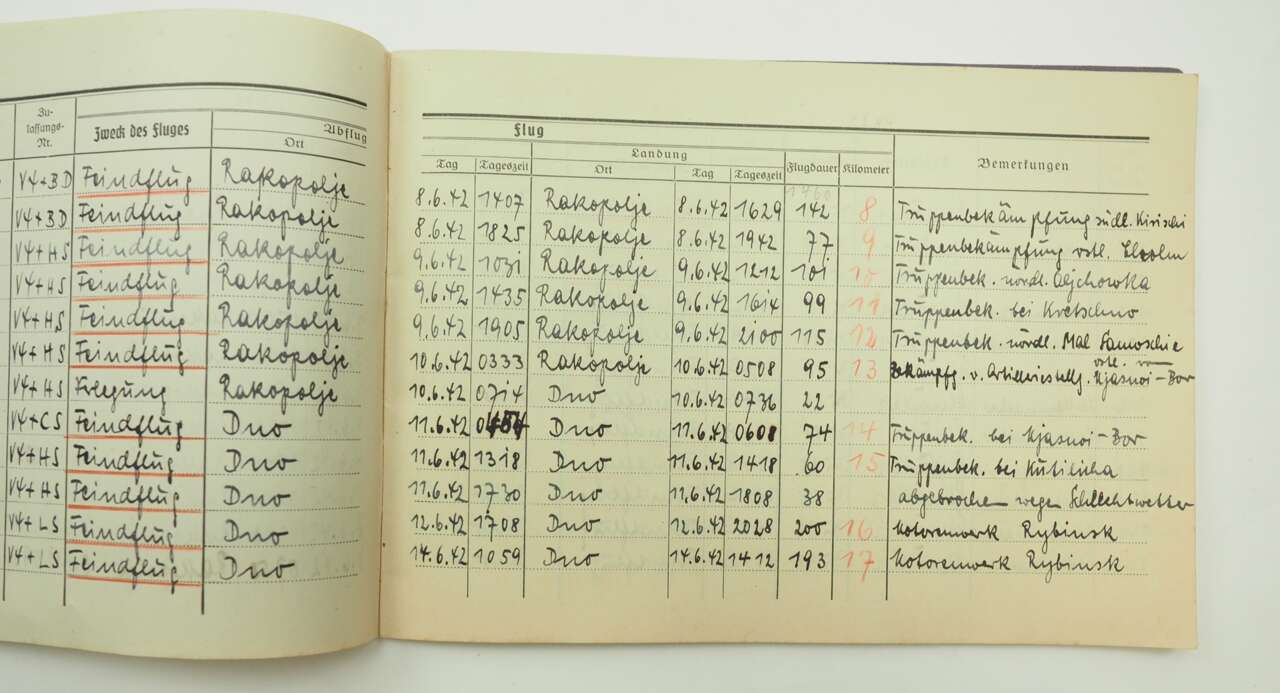 Zu-
lassungs-
Nr.
Zweck des Fluges
Abflug
Ort
Flug
Landung
Tag Tageszeit Ort Tag Tageszeit Flugdauer Kilometer Bemerkungen
V4+BD Feindflug Rakopolje 8.6.42 1407 Rakopolje 8.6.42 1629 142 8 Truppenbekämpfung südl. Kirischi
V4+BD Feindflug Rakopolje 8.6.42 1825 Rakopolje 8.6.42 1942 77 9 Truppenbekämpfung östl. Cholm
V4+HS Feindflug Rakopolje 9.6.42 1031 Rakopolje 9.6.42 1212 101 10 Truppenbek. nördl. Oljchowka
V4+HS Feindflug Rakopolje 9.6.42 1435 Rakopolje 9.6.42 1614 99 11 Truppenbek. bei Kretschno
V4+HS Feindflug Rakopolje 9.6.42 1905 Rakopolje 9.6.42 2100 115 12 Truppenbek. nördl. Mal Samoschie
V4+HS Feindflug Rakopolje 10.6.42 0333 Rakopolje 10.6.42 0508 95 13 Bekämpfg. v. Artilleriestellg. östl. v. Mjasnoi-Bor
V4+HS Verlegung Rakopolje 10.6.42 0714 Dno 10.6.42 0736 22
V4+CS Feindflug Dno 11.6.42 0454 Dno 11.6.42 0608 74 14 Truppenbek. bei Mjasnoi-Bor
V4+HS Feindflug Dno 11.6.42 1318 Dno 11.6.42 1418 60 15 Truppenbek. bei Kutilicha
V4+HS Feindflug Dno 11.6.42 1730 Dno 11.6.42 1808 38 abgebrochen wegen Schlechtwetter
V4+LS Feindflug Dno 12.6.42 1708 Dno 12.6.42 2028 200 16 Motorenwerk Rybinsk
V4+LS Feindflug Dno 14.6.42 1059 Dno 14.6.42 1412 193 17 Motorenwerk Rybinsk